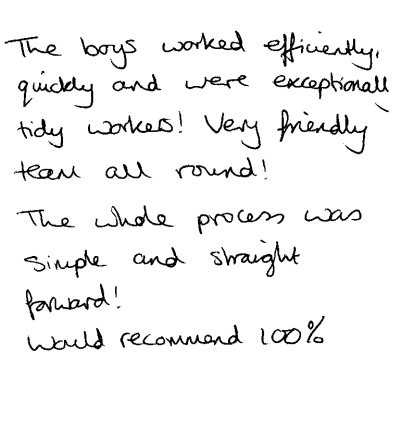 The boys worked efficiently,
quickly and were exceptionally
tidy workers! Very friendly
team all round!
The whole process was
simple and straight
forward!
Would recommend 100%